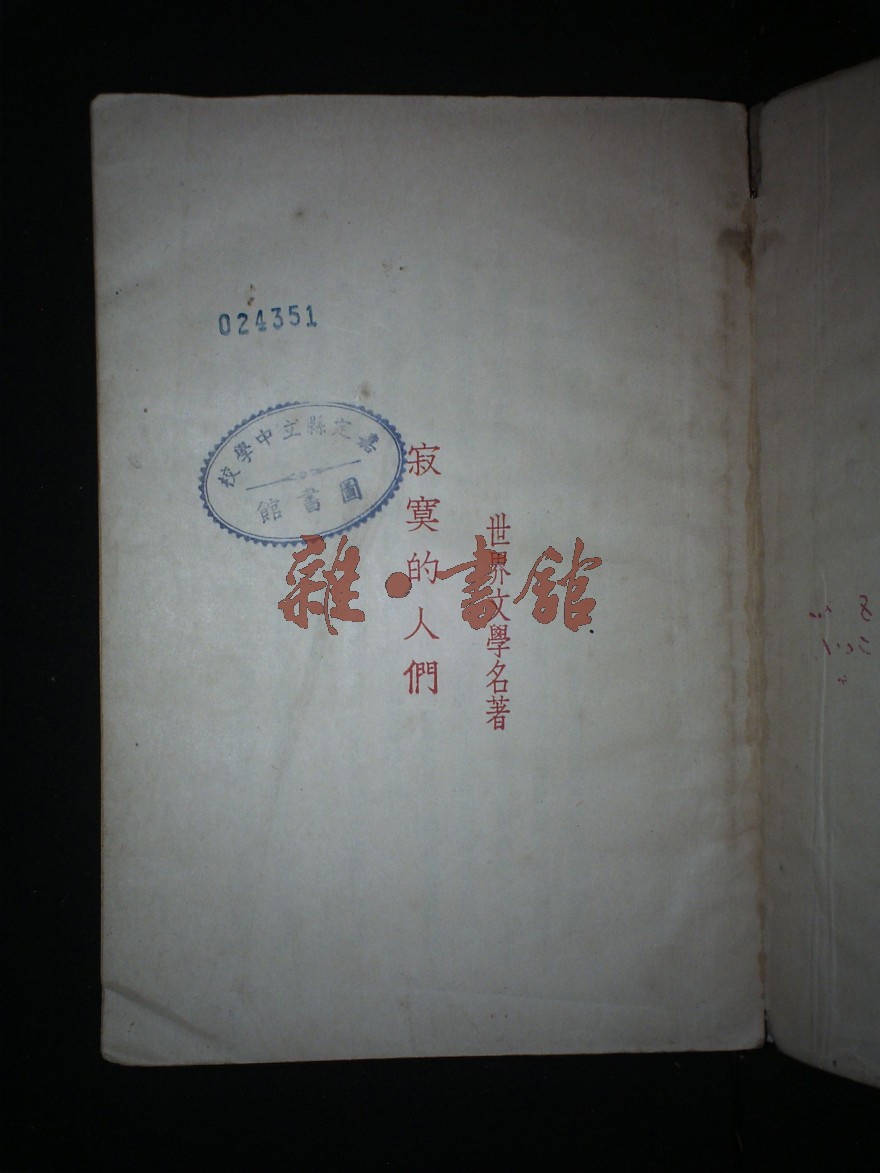 024351
嘉定縣立中學校
圖書館
世界文學名著
寂寞的人們
雜·書館